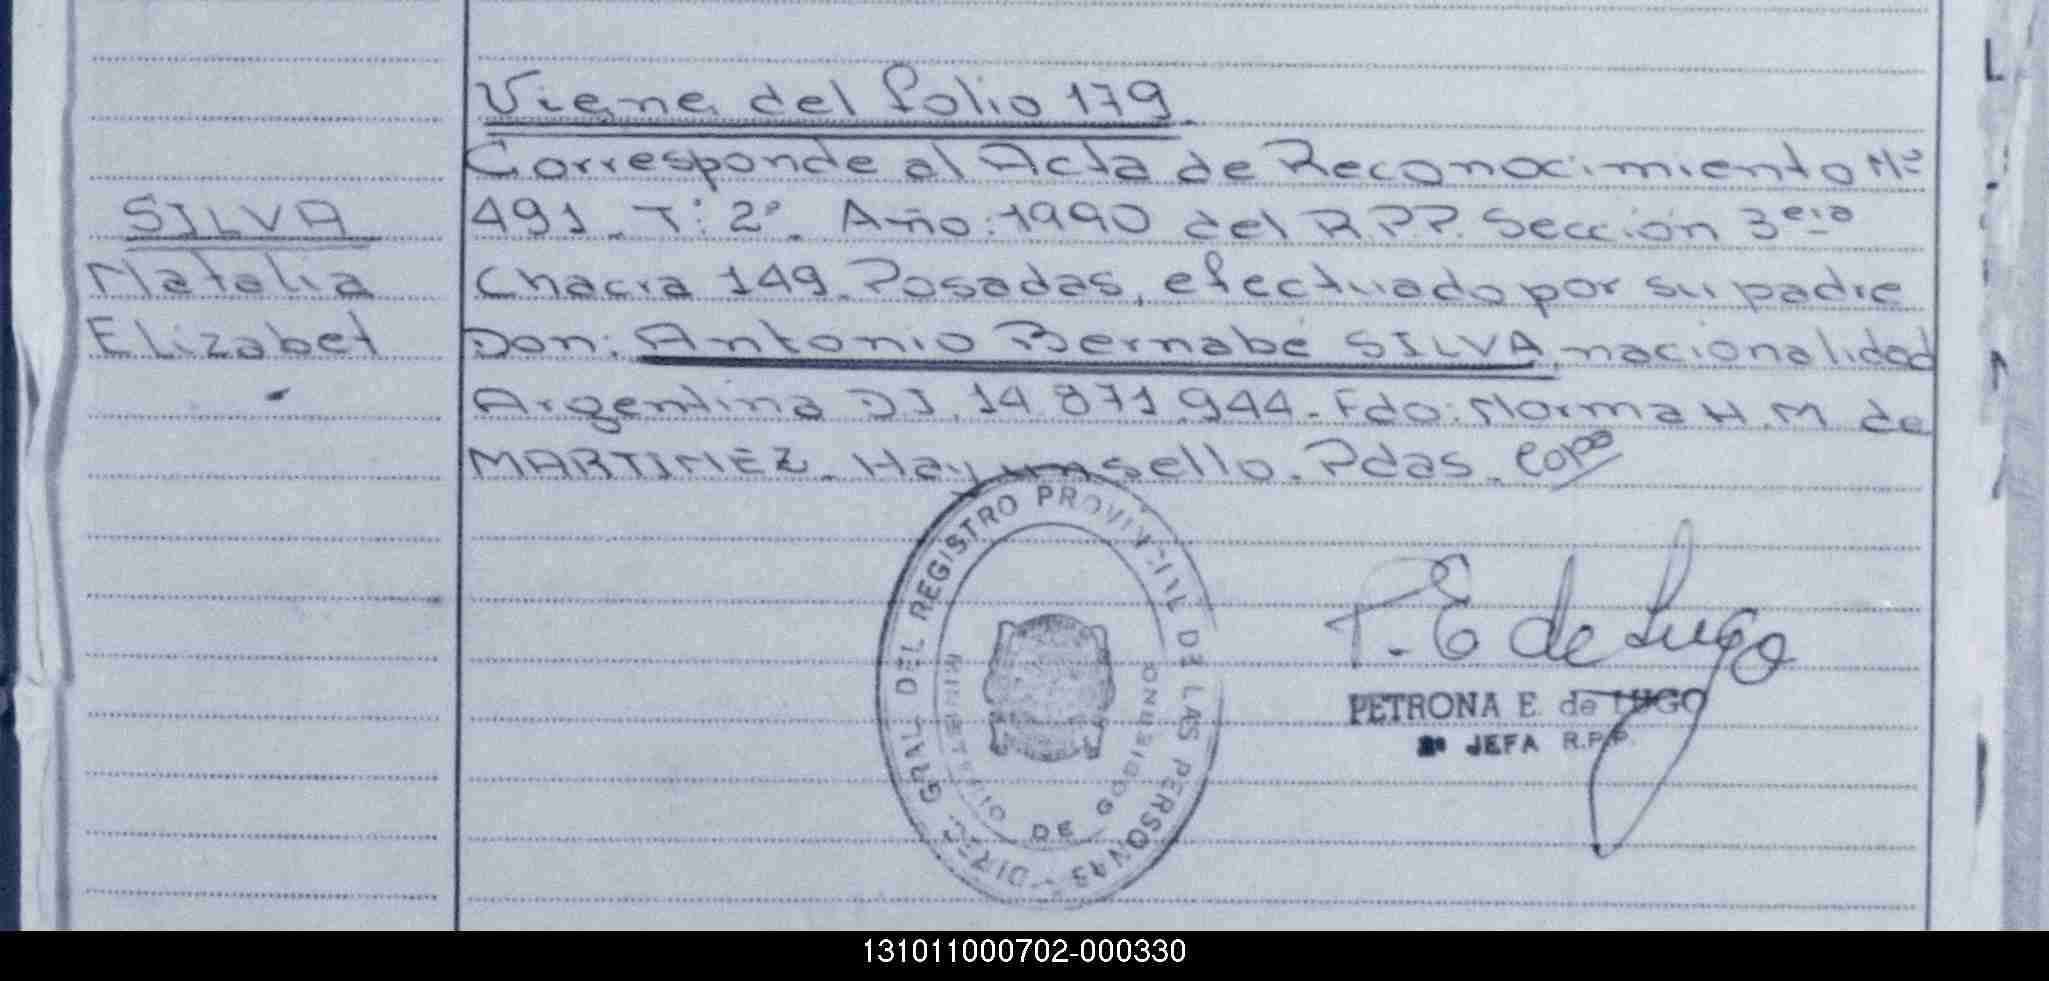 Viene del folio 179.
Corresponde al Acta de Reconocimiento Nº
SILVA
Natalia
Elizabet
491. T: 2º. Año: 1990 del R.P.P. Sección 3era
Chacra 149. Posadas, efectuado por su padre
Don: Antonio Bernabé SILVA nacionalidad
Argentina DI. 14.871.944. Fdo: Norma H.M de
MARTINEZ. Hay un sello. Pdas.
DIREC. GRAL DEL REGISTRO PROVINCIAL DE LAS PERSONAS
MINISTERIO DE GOBIERNO
P. E de Lugo
PETRONA E. de LUGO
2º JEFA R.P.P.
131011000702-000330